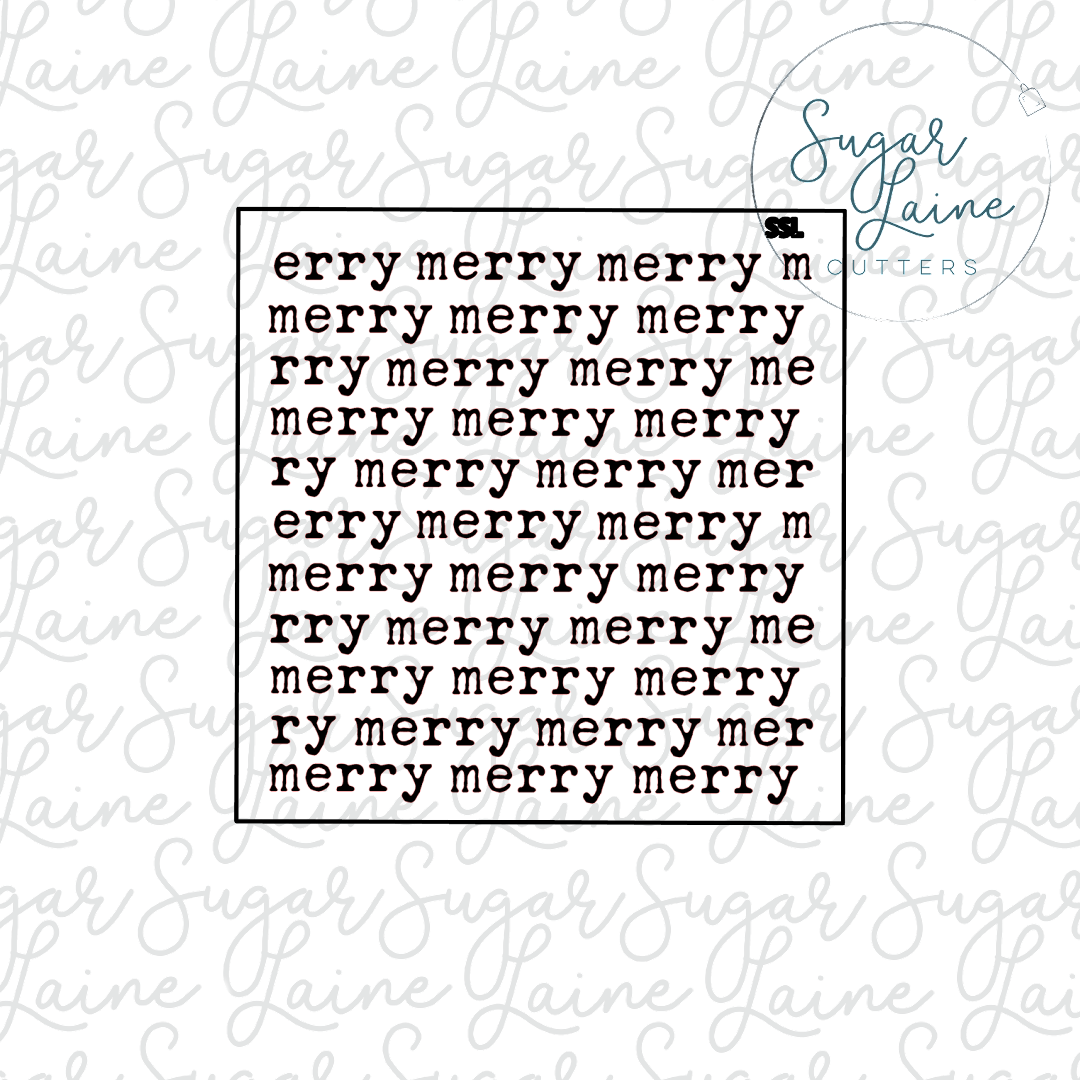 Sugar
Laine
CUTTERS
SSL
erry merry merry m
merry merry merry
rry merry merry me
merry merry merry
ry merry merry mer
erry merry merry m
merry merry merry
rry merry merry me
merry merry merry
ry merry merry mer
merry merry merry